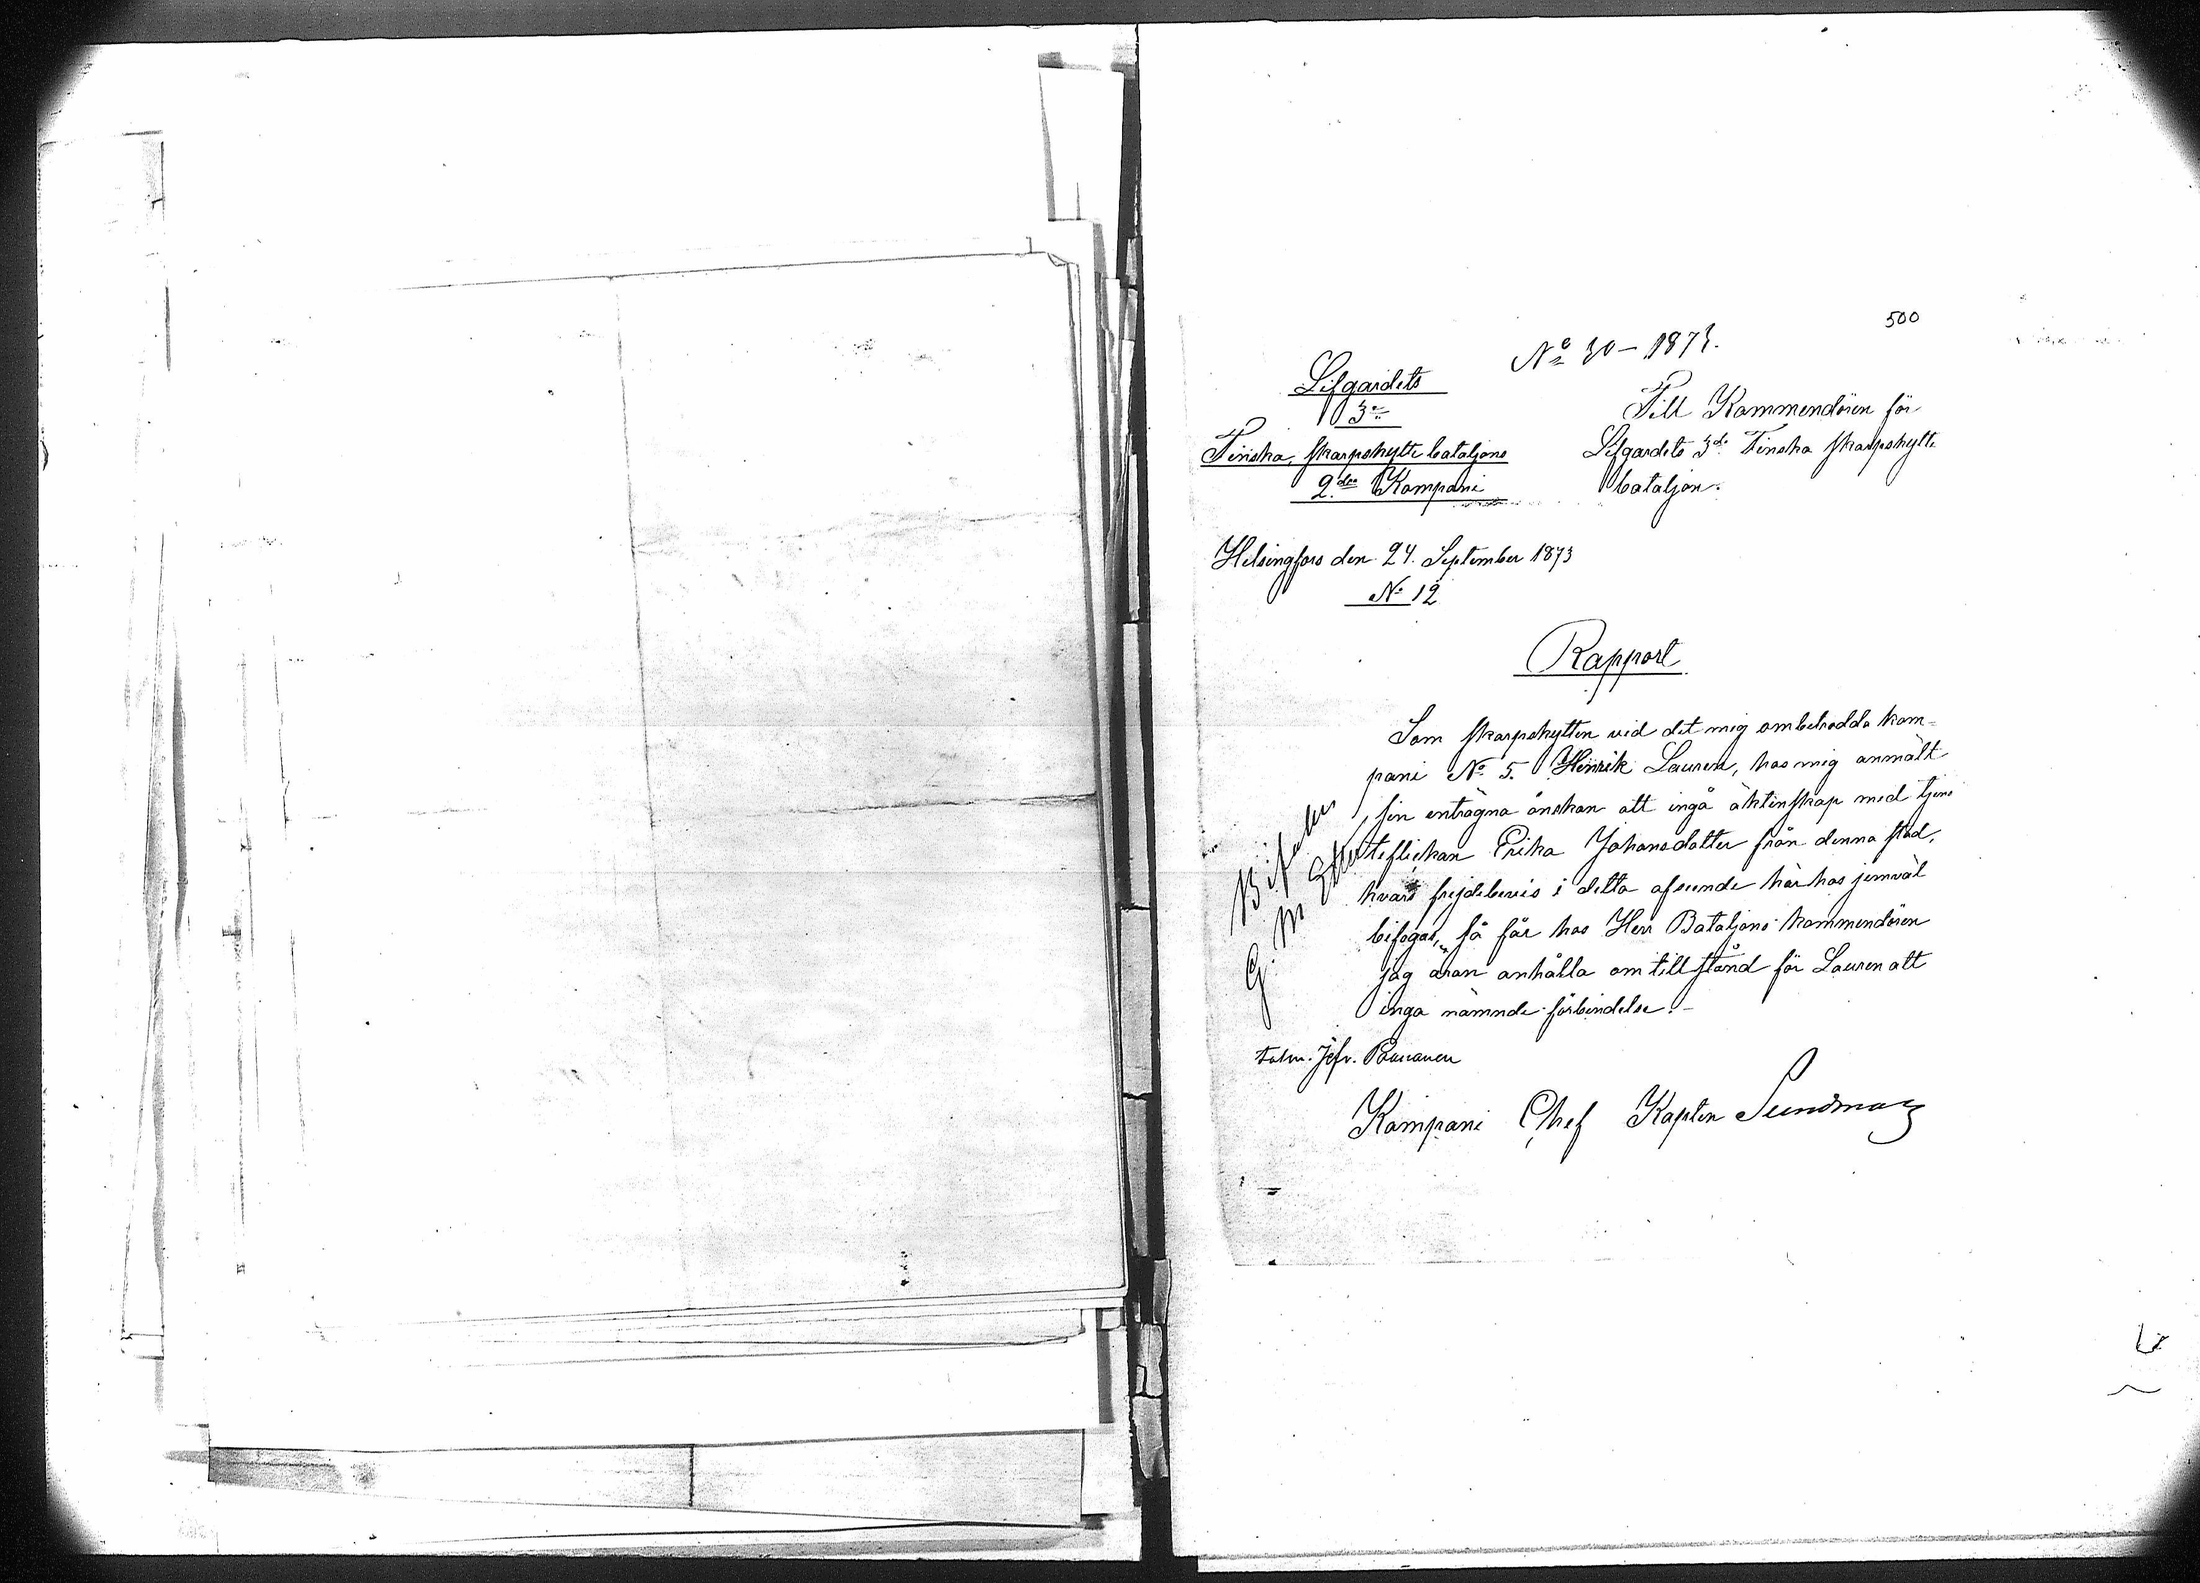 500
No 30 – 1873.
Lifgardets
3e
Finska skarpskytte bataljons
2dra Kompani
Till Kommendören för
Lifgardets 3de Finska skarpskytte
bataljon.
Helsingfors den 24. September 1873
No 12
Rapport
Som skarpskytten vid det mig ombetrodda kom-
pani No 5. Henrik Lauren, hos mig anmält
sin enträgna önskan att ingå äktenskap med tjens
teflickan Erika Johansdotter från denna stad,
hvars frejdebevis i detta afseende här hos jemväl
bifogas, så får hos Herr Bataljons kommendören
jag äran anhålla om tillstånd för Lauren att
inga nämnde förbindelse. –
Bifalles
G. M.
Kompani Chef Kapten Sundman